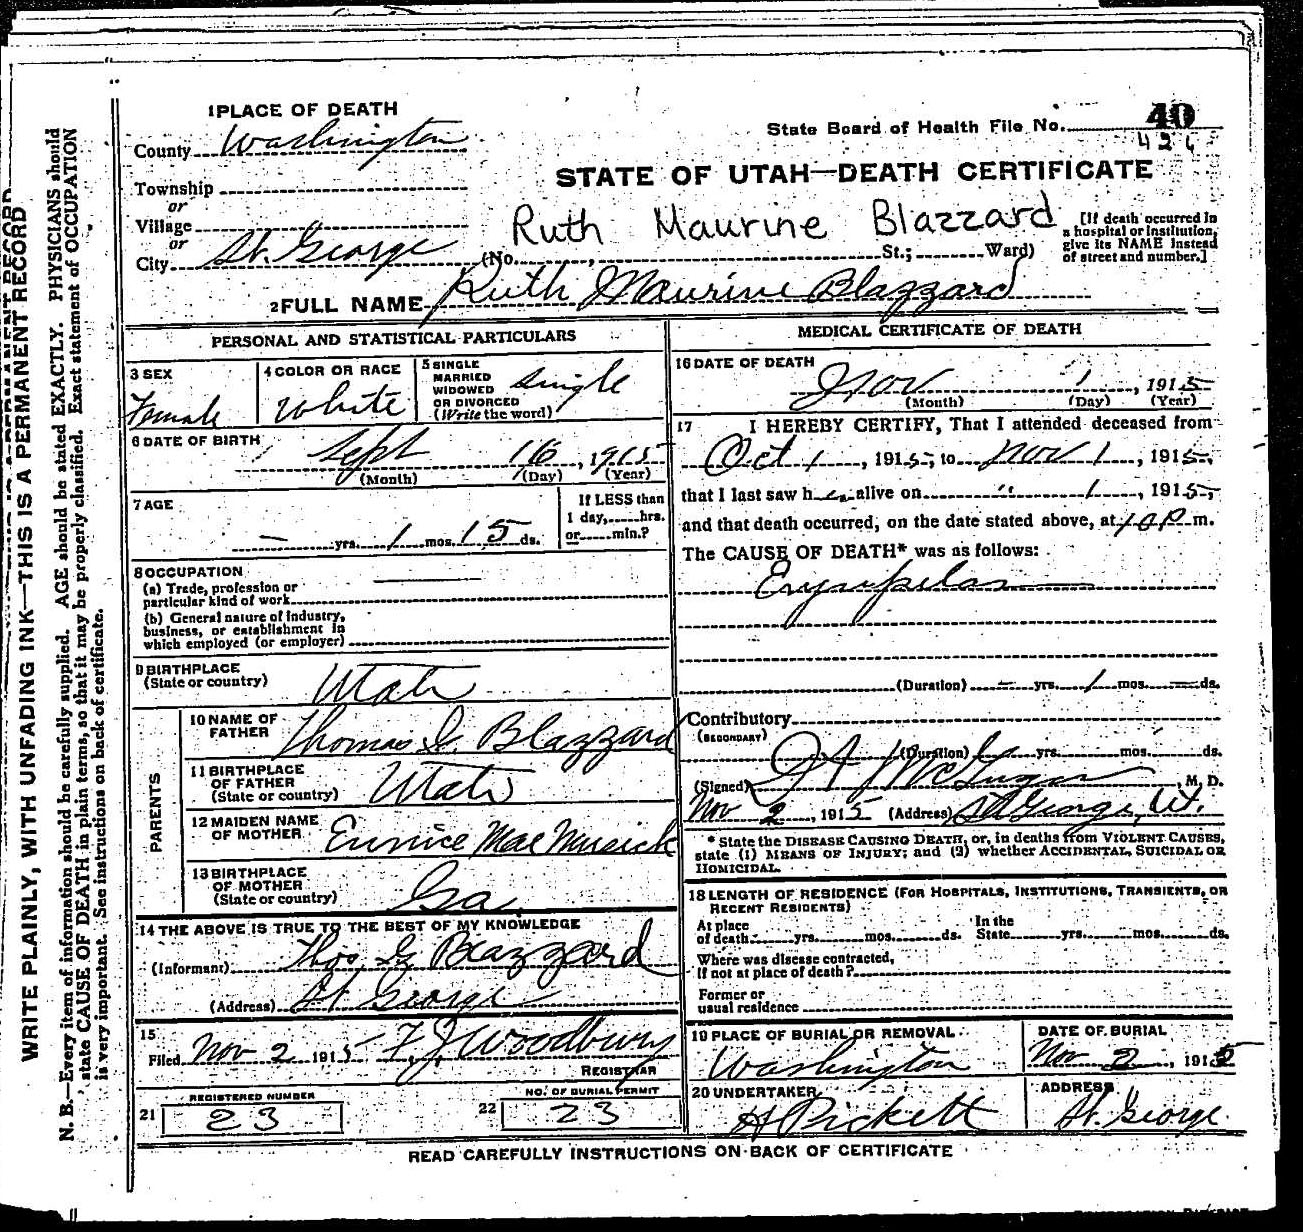 1 PLACE OF DEATH
County Washington
Township
or
Village
or
City St. George
State Board of Health File No. 40
STATE OF UTAH—DEATH CERTIFICATE
Ruth Maurine Blazzard
(No. , St.; Ward)
[If death occurred in
a hospital or institution,
give its NAME instead
of street and number.]
2 FULL NAME Ruth Maurine Blazzard
PERSONAL AND STATISTICAL PARTICULARS
3 SEX
Female
4 COLOR OR RACE
White
5 SINGLE
MARRIED
WIDOWED
OR DIVORCED
(Write the word)
Single
6 DATE OF BIRTH
Sept 16, 1915
(Month) (Day) (Year)
7 AGE
— yrs. 1 mos. 15 ds.
If LESS than
1 day, hrs.
or min.?
8 OCCUPATION
(a) Trade, profession or
particular kind of work
(b) General nature of industry,
business, or establishment in
which employed (or employer)
9 BIRTHPLACE
(State or country)
Utah
PARENTS
10 NAME OF
FATHER
Thomas G. Blazzard
11 BIRTHPLACE
OF FATHER
(State or country)
Utah
12 MAIDEN NAME
OF MOTHER
Eunice Mae Musick
13 BIRTHPLACE
OF MOTHER
(State or country)
Ga
14 THE ABOVE IS TRUE TO THE BEST OF MY KNOWLEDGE
(Informant) Thos. G Blazzard
(Address) St. George
15
Filed Nov 2 1915 F. J. Woodbury
REGISTRAR
21 REGISTERED NUMBER
23
22 NO. OF BURIAL PERMIT
23
MEDICAL CERTIFICATE OF DEATH
16 DATE OF DEATH
Nov 1, 1915
(Month) (Day) (Year)
17 I HEREBY CERTIFY, That I attended deceased from
Oct 1, 1915, to Nov 1, 1915,
that I last saw her alive on " 1, 1915,
and that death occurred, on the date stated above, at 10 P. m.
The CAUSE OF DEATH* was as follows:
Erysipelas
(Duration) — yrs. 1 mos. — ds.
Contributory
(SECONDARY)
(Duration) yrs. mos. ds.
(Signed) M. D.
Nov 2, 1915 (Address) St George, Ut.
* State the DISEASE CAUSING DEATH, or, in deaths from VIOLENT CAUSES,
state (1) MEANS OF INJURY; and (2) whether ACCIDENTAL, SUICIDAL OR
HOMICIDAL.
18 LENGTH OF RESIDENCE (FOR HOSPITALS, INSTITUTIONS, TRANSIENTS, OR
RECENT RESIDENTS)
At place
of death yrs. mos. ds.
In the
State yrs. mos. ds.
Where was disease contracted,
if not at place of death?
Former or
usual residence
19 PLACE OF BURIAL OR REMOVAL
Washington
DATE OF BURIAL
Nov 2, 1915
20 UNDERTAKER
H Pickett
ADDRESS
St. George
READ CAREFULLY INSTRUCTIONS ON BACK OF CERTIFICATE
WRITE PLAINLY, WITH UNFADING INK—THIS IS A PERMANENT RECORD
N. B.—Every item of information should be carefully supplied. AGE should be stated EXACTLY. PHYSICIANS should
state CAUSE OF DEATH in plain terms, so that it may be properly classified. Exact statement of OCCUPATION
is very important. See instructions on back of certificate.